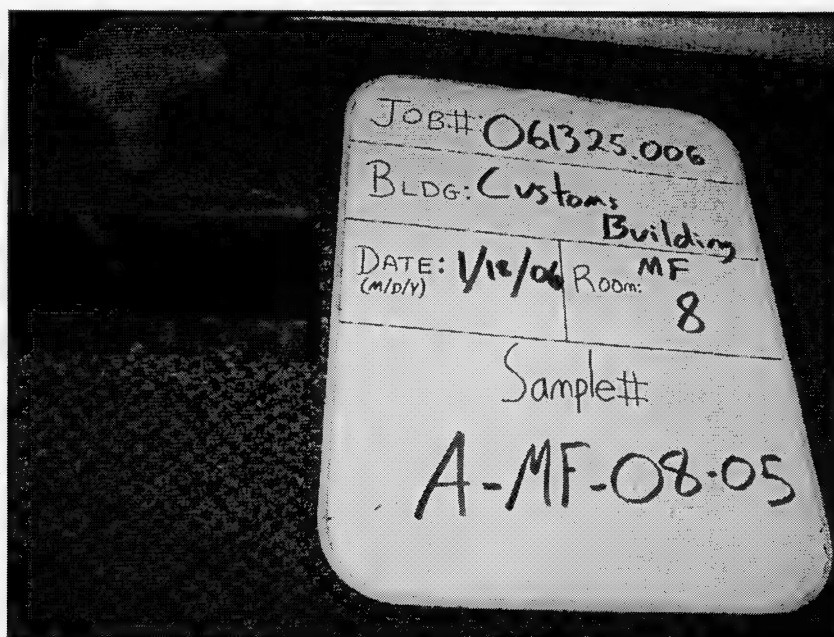 JOB#: 061325.006
BLDG: Customs
Building
DATE: 1/12/06
(M/D/Y)
ROOM: MF
8
Sample#
A-MF-08-05